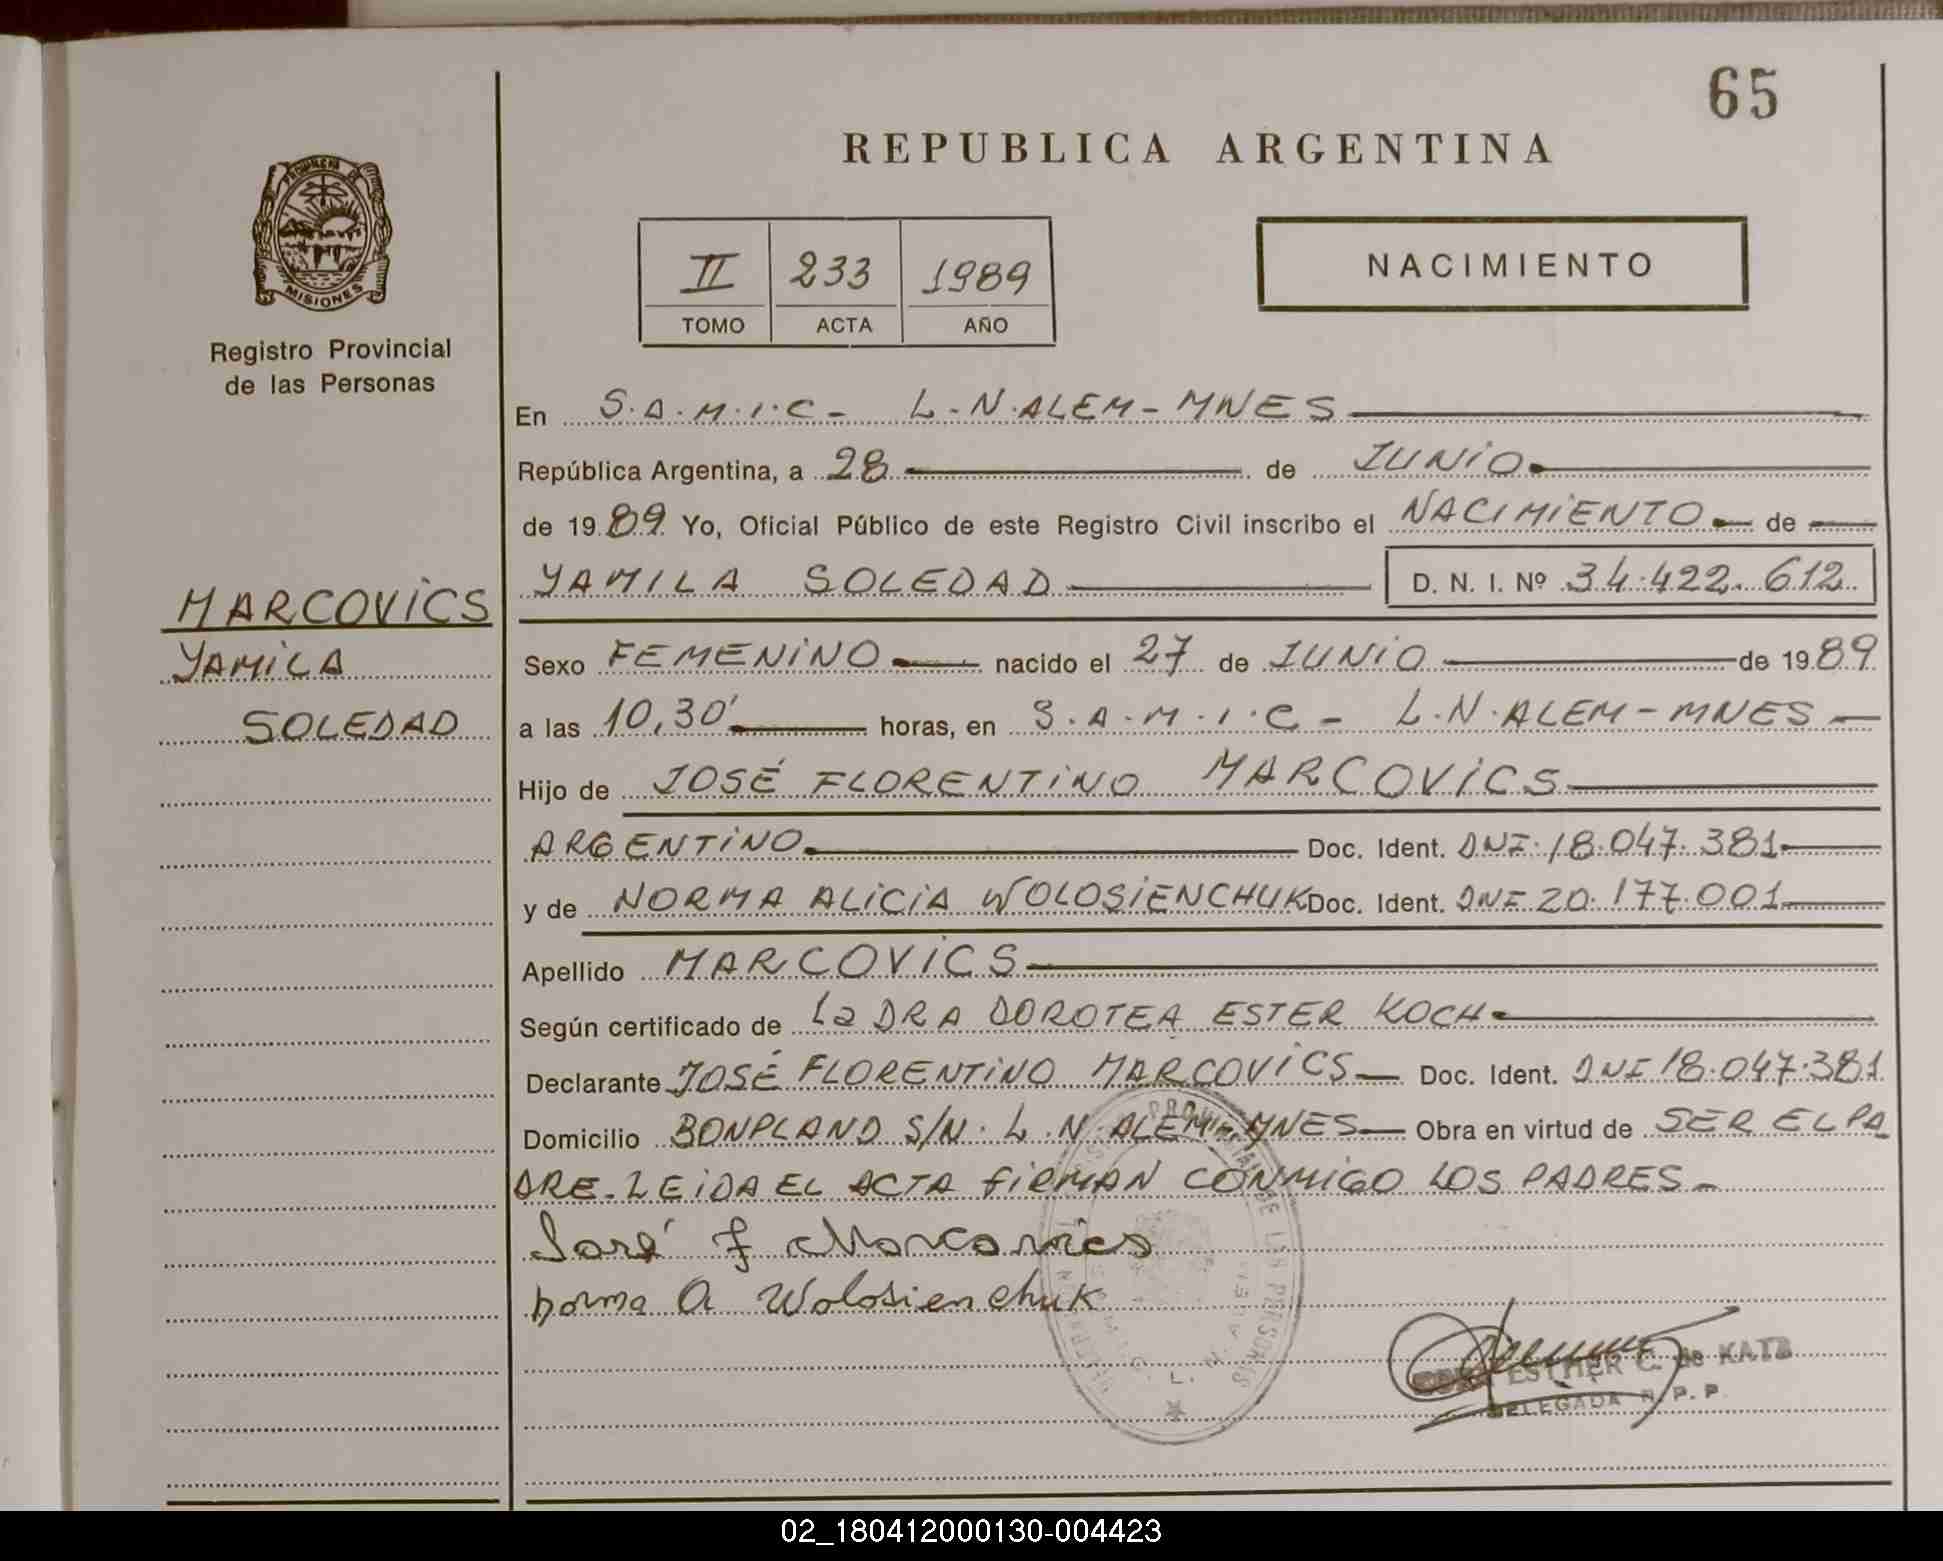 65
REPUBLICA ARGENTINA
PROVINCIA DE
MISIONES
Registro Provincial
de las Personas
II 233 1989
TOMO ACTA AÑO
NACIMIENTO
En S.A.M.I.C- L.N.ALEM-MNES
República Argentina, a 28 de JUNIO
de 1989 Yo, Oficial Público de este Registro Civil inscribo el NACIMIENTO de
YAMILA SOLEDAD D. N. I. Nº 34.422.612
MARCOVICS
YAMILA
SOLEDAD
Sexo FEMENINO nacido el 27 de JUNIO de 1989
a las 10,30' horas, en S.A.M.I.C- L.N.ALEM-MNES-
Hijo de JOSÉ FLORENTINO MARCOVICS
ARGENTINO Doc. Ident. DNI.18.047.381
y de NORMA ALICIA WOLOSIENCHUK Doc. Ident. DNI 20.177.001
Apellido MARCOVICS
Según certificado de La DRA DOROTEA ESTER KOCH
Declarante JOSÉ FLORENTINO MARCOVICS Doc. Ident. DNI 18.047.381
Domicilio BONPLAND S/N. L.N.ALEM-MNES Obra en virtud de SER EL PA
DRE-LEIDA EL ACTA FIRMAN CONMIGO LOS PADRES-
José F Marcovics
Norma A Wolosienchuk
ESTHER C. de KATZ
DELEGADA R.P.P.
02_180412000130-004423